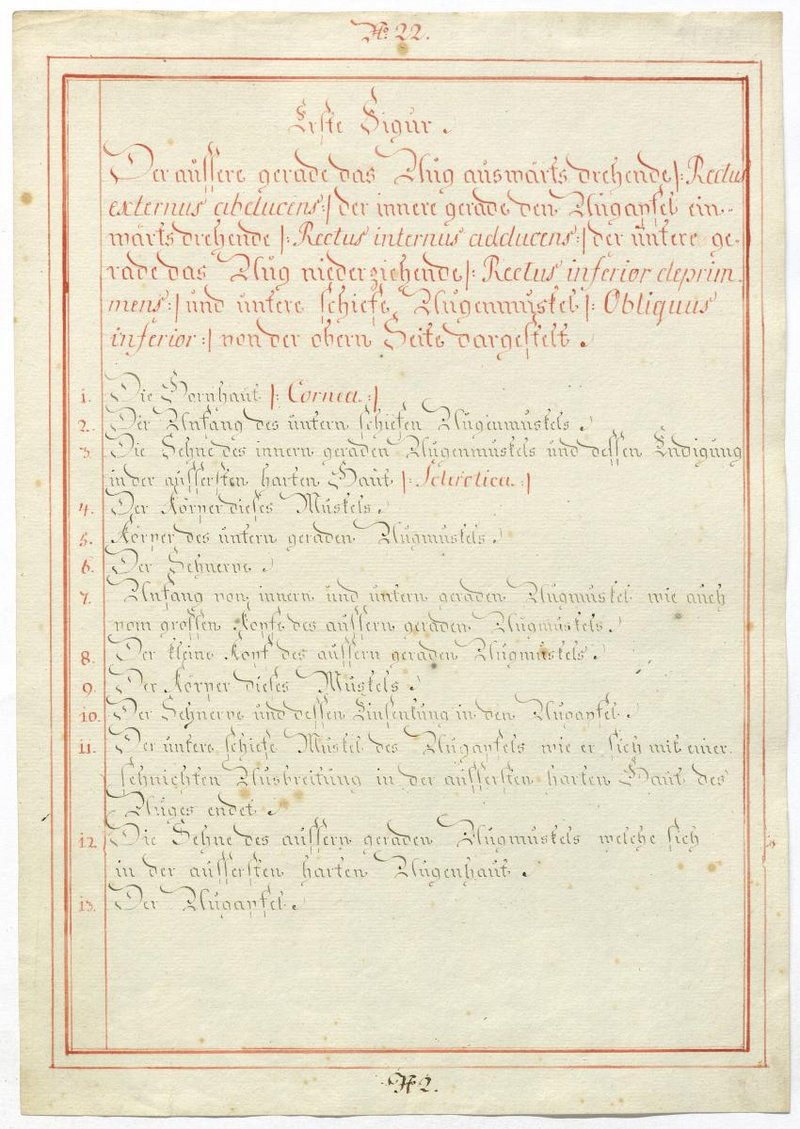 No. 22.
Erste Figur.
Der aüssere gerade das Aug auswärts drehende |: Rectus
externus abducens :| der innere gerade den Augapfel ein-
wärts drehende |: Rectus internus adducens :| der üntere ge-
rade das Aug niederziehende |: Rectus inferior deprim
mens :| und untere schiefe Augenmuskel |: Obliquus
inferior :| von der obern Seite dargestelt.
1. Die Hornhaut |: Cornea :|
2. Der Anfang des üntern schiefen Augenmuskels.
3. Die Sehne des innern geraden Augenmuskels und dessen Endigung
in der aüssersten harten Haut |: Sclrotica :|
4. Der Körper dieses Muskels.
5. Körper des üntern geraden Augmuskels.
6. Der Sehnerve.
7. Anfang von innern und untern geraden Augmuskel wie auch
vom grossen Kopfe des aüssern geraden Augmuskels.
8. Der kleine Kopf des aüssern geraden Augmuskels.
9. Der Körper dieses Muskels.
10. Der Sehnerve und dessen Einsenkung in den Augapfel.
11. Der üntere schiefe Muskel des Augapfels wie er sich mit einer
sehnichten Ausbreitung in der aüssersten harten Haut des
Auges endet.
12. Die Sehne des aüssern geraden Augmuskels welche sich
in der aüssersten harten Augenhaut.
13. Der Augapfel.
2.